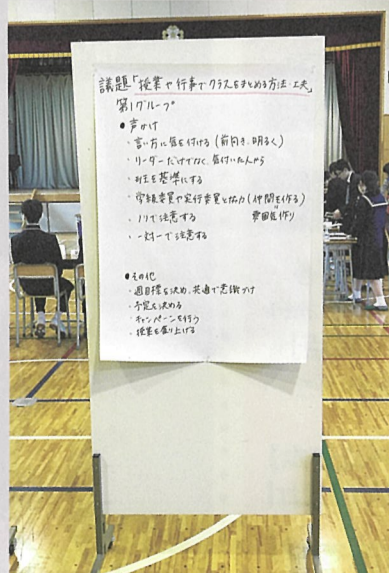 議題「授業や行事でクラスをまとめる方法・工夫」
第1グループ
●声かけ
・言い方に気を付ける（前向き、明るく）
・リーダーだけでなく、気付いた人から
・班を基準にする
・学級委員や実行委員と協力（仲間を作る）
雰囲気作り
・ノリで注意する
・一対一で注意する
●その他
・週目標を決め、共通で意識づけ
・予定を決める
・キャンペーンを行う
・授業を盛り上げる